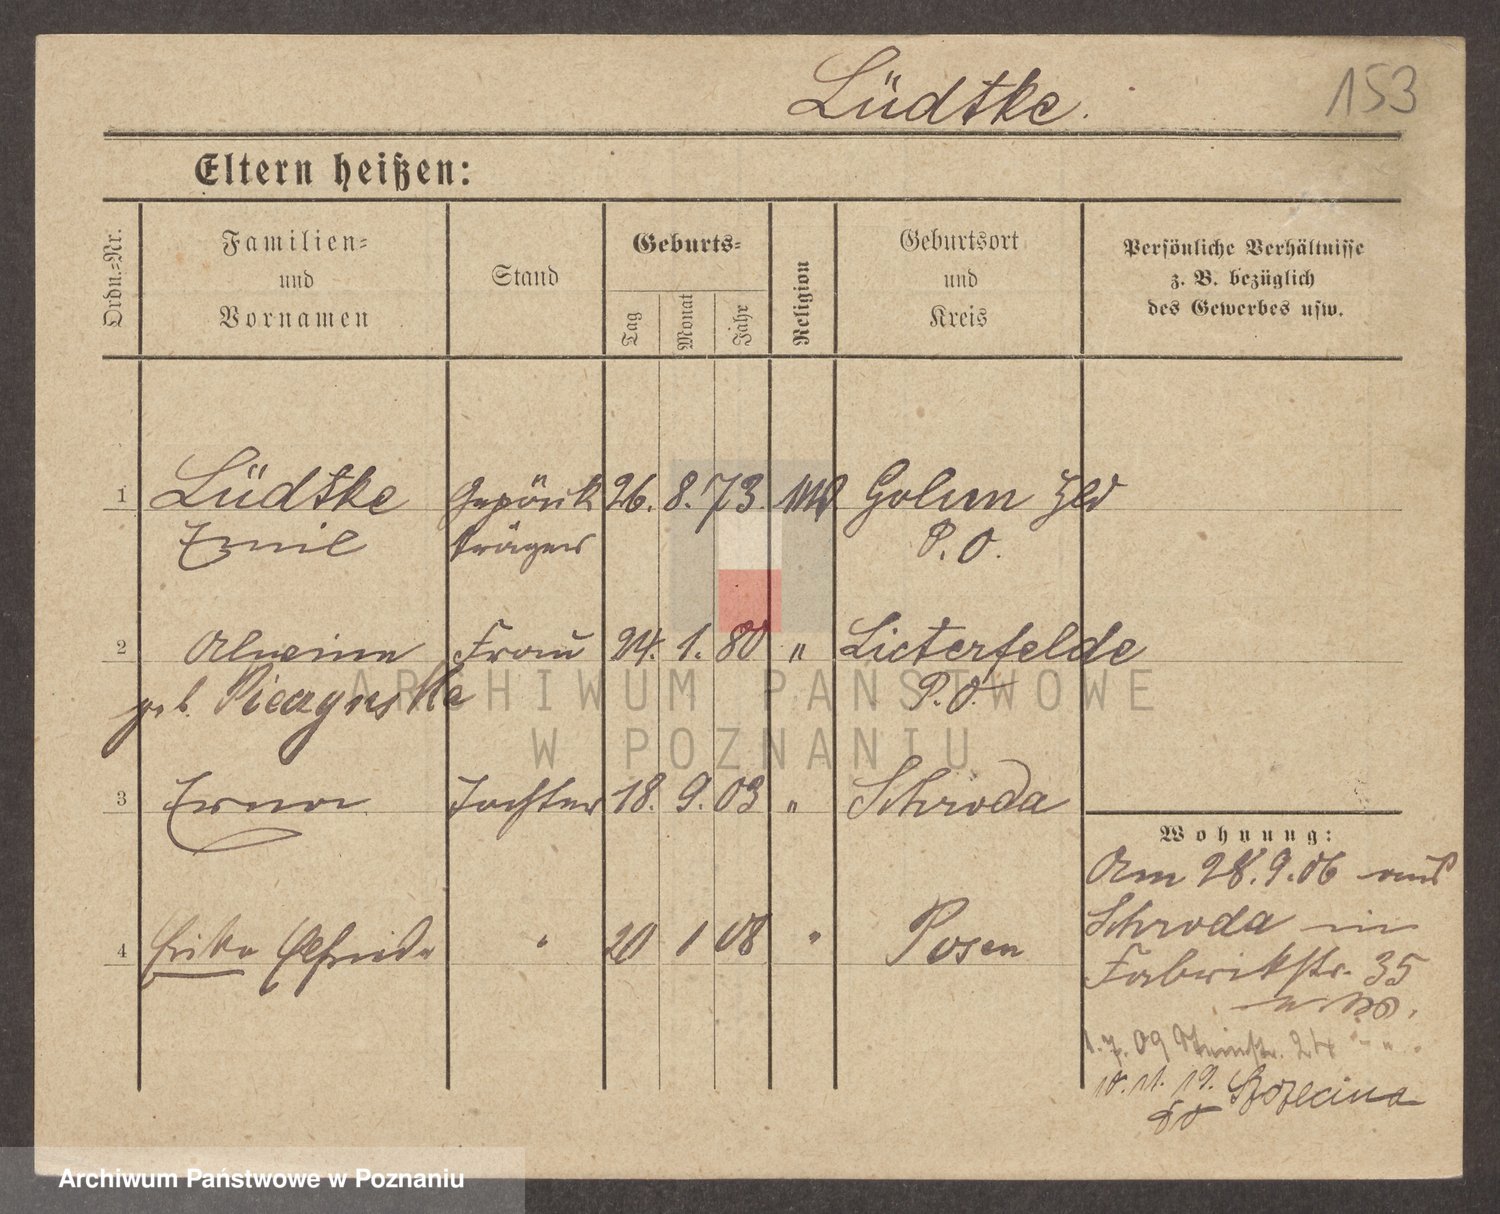 Lüdtke.
153
Eltern heißen:
Ordn.=Nr.
Familien=
und
Vornamen
Stand
Geburts=
Tag
Monat
Jahr
Religion
Geburtsort
und
Kreis
Persönliche Verhältnisse
z. B. bezüglich
des Gewerbes usw.
1 Lüdtke Gepäck 26. 8. 73. Golum
Emil träger P. O.
2 Alwine Frau 24. 1. 80 " Licterfelde
geb. P. O.
3 Erna Tochter 18. 9. 03 " Schroda
Wohnung:
Am 28.9.06 aus
Schroda in
4 Erika Elfriede " 20 1 08 " Posen
Fabrikstr. 35
1.7.09 24 " "
19. Szczecina
ARCHIWUM PAŃSTWOWE
W POZNANIU
Archiwum Państwowe w Poznaniu